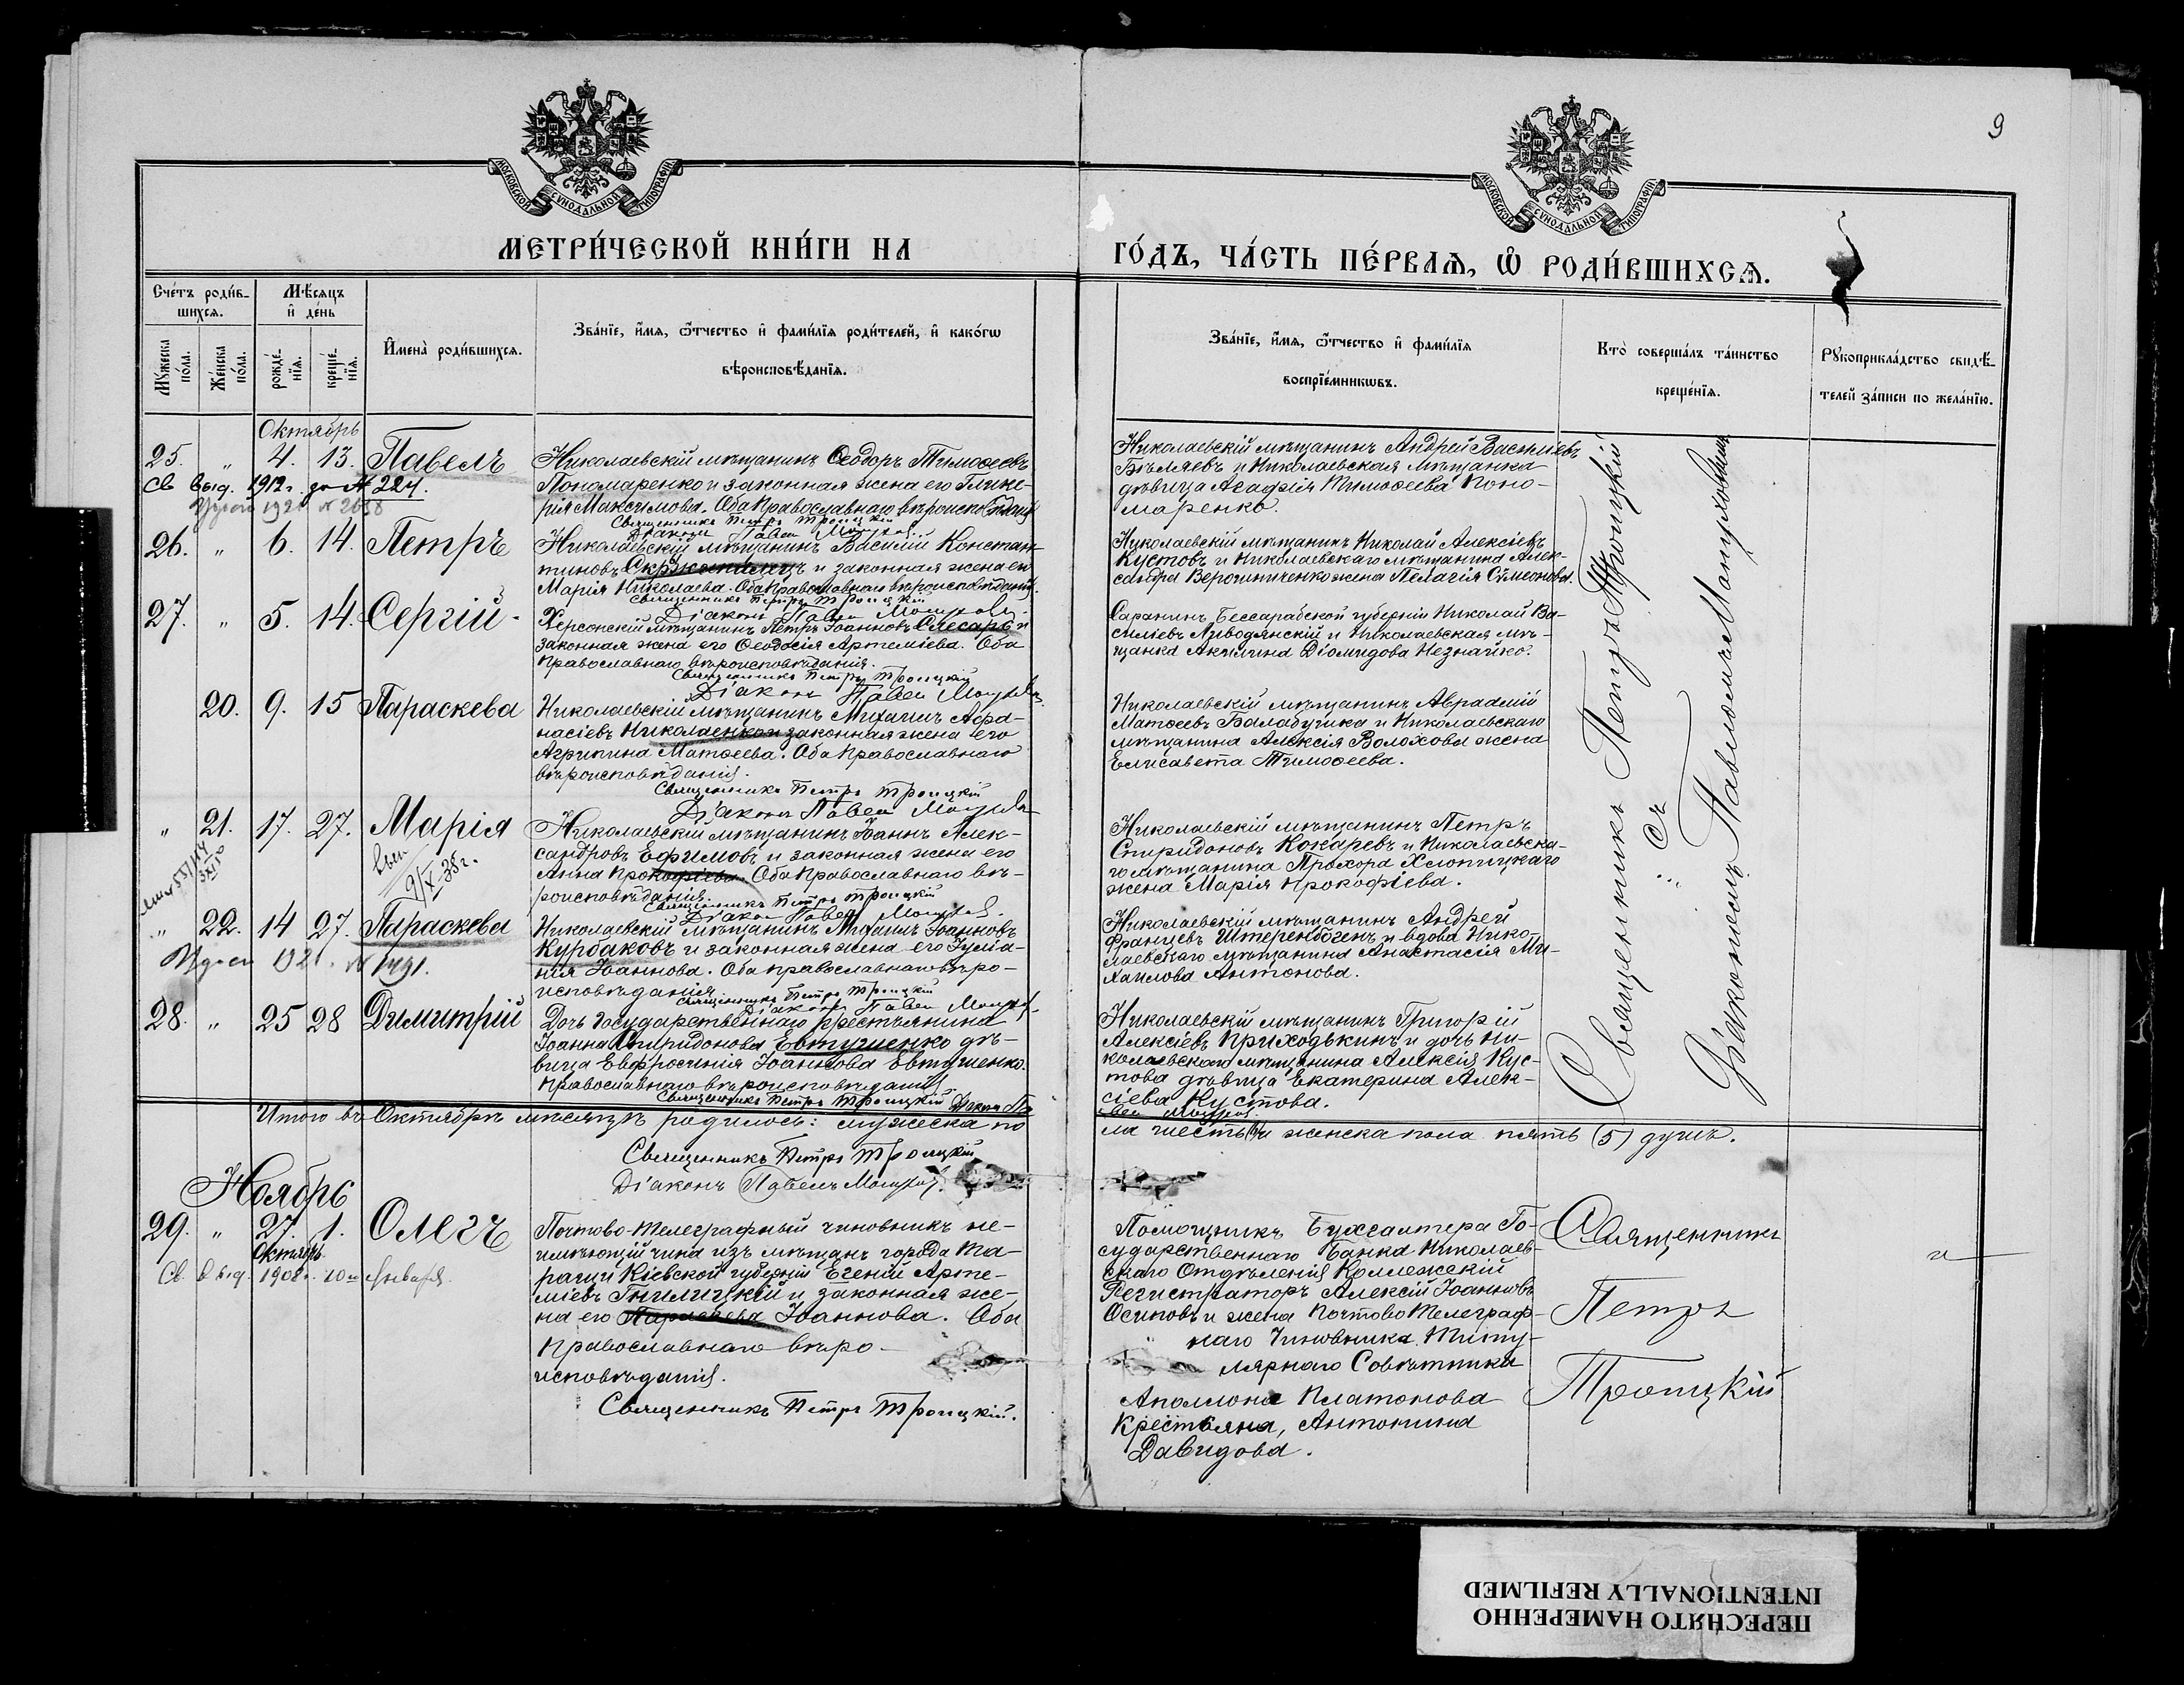 9
МОСКОВСКОЙ СУНОДАЛЬНОЙ ТИПОГРАФІИ
МОСКОВСКОЙ СУНОДАЛЬНОЙ ТИПОГРАФІИ
МЕТРИ́ЧЕСКОЙ КНИ́ГИ НА
ГО́ДЪ, ЧА́СТЬ ПЕ́РВАѦ, Ѡ҆ РОДИ́ВШИХСѦ.
Сче́тъ роди́в-
шихсѧ.
Мѣ́сѧцъ
и҆ де́нь
Мꙋ́жеска
по́ла.
Же́нска
по́ла.
рожде́-
нїѧ.
креще́-
нїѧ.
И҆мена̀ роди́вшихсѧ.
Зва́нїе, и҆́мѧ, ѻ҆́тчество и҆ фами́лїѧ роди́телей, и҆ како́гѡ
вѣроисповѣ́данїѧ.
Зва́нїе, и҆́мѧ, ѻ҆́тчество и҆ фами́лїѧ
воспрїе́мникѡвъ.
Кто̀ соверша́лъ та́инство
креще́нїѧ.
Рꙋкоприкла́дство свидѣ́-
телей за́писи по жела́нїю.
Октябрь
25. „ 4. 13. Павелъ
Св выд. 1912 г. за № 224.
Николаевскій мѣщанинъ Ѳеодоръ Тимоѳеевъ
Пономаренко и законная жена его Глике-
рія Максимова. Оба Православнаго вѣроисповѣданія
Священникъ Петръ Троицкій
Діаконъ Павелъ
Николаевскій мѣщанинъ Андрей Васильевъ
Бѣляевъ и Николаевская мѣщанка
дѣвица Агафія Тимоѳеева Поно-
маренко.
26. „ 6. 14. Петръ
Николаевскій мѣщанинъ Василій Констан-
тиновъ и законная жена его
Марія Николаева. Оба Православнаго вѣроисповѣданія.
Священникъ Петръ Троицкій
Діаконъ Павелъ
Николаевскій мѣщанинъ Николай Алексіевъ
Кустовъ и Николаевскаго мѣщанина Алек-
сандра Верошниченко жена Пелагія Сѵмеонова.
27. „ 5. 14. Сергій
Херсонскій мѣщанинъ Петръ Іоанновъ Слесарь и
законная жена его Ѳеодосія Артеміева. Оба
Православнаго вѣроисповѣданія.
Священникъ Петръ Троицкій
Діаконъ Павелъ
Бессарабской губерніи Николай Ва-
силіевъ Ливодянскій и Николаевская мѣ-
щанка Акилина Діомидова Незнайко.
20. 9. 15 Параскева
Николаевскій мѣщанинъ Михаилъ Афа-
насіевъ Николаенко и законная жена его
Агрипина Матѳеева. Оба Православнаго
вѣроисповѣданія.
Священникъ Петръ Троицкій
Діаконъ Павелъ
Николаевскій мѣщанинъ Авраамій
Матѳеевъ и Николаевскаго
мѣщанина Алексія Волохова жена
Елисавета Тимоѳеева.
„ 21. 17. 27. Марія
9/X 38 г.
Николаевскій мѣщанинъ Іоаннъ Алек-
сандровъ Ефимовъ и законная жена его
Анна Прокофіева. Оба Православнаго вѣ-
роисповѣданія.
Священникъ Петръ Троицкій
Діаконъ Павелъ
Николаевскій мѣщанинъ Петръ
Спиридоновъ Кокаревъ и Николаевска-
го мѣщанина Прохора Хлопицкаго
жена Марія Прокофіева.
„ 22. 14 27. Параскева
Николаевскій мѣщанинъ Михаилъ Іоанновъ
Курбаковъ и законная жена его Іулiа-
нія Іоаннова. Оба православнаго вѣро-
исповѣданія.
Священникъ Петръ Троицкій
Діаконъ Павелъ
Николаевскій мѣщанинъ Андрей
Францевъ Штеренбогенъ и вдова Нико-
лаевскаго мѣщанина Анастасія Ми-
хаилова Антонова.
28. „ 25 28 Димитрій
Дочь государственнаго крестьянина
Іоанна Спиридонова Евтушенко дѣ-
вица Евфросинія Іоаннова Евтушенко.
Православнаго вѣроисповѣданія
Священникъ Петръ Троицкій Діаконъ Па-
Николаевскій мѣщанинъ Григорій
Алексіевъ Приходькинъ и дочь Ни-
колаевскаго мѣщанина Алексія Кус-
това дѣвица Екатерина Алек-
сіева Кустова.
Священникъ Петръ Троицкій
съ
Діакономъ Павломъ
Итого въ Октябрѣ мѣсяцѣ родилось: мужеска по-
ла шесть и женска пола пять (5) душъ.
Священникъ Петръ Троицкій
Діаконъ Павелъ
Ноябрь
29. „ 27. 1. Олегъ
Октябрь
Св. выд. 1908 г. 10 Января
Почтово-Телеграфный чиновникъ не-
имѣющій чина изъ мѣщанъ города Та-
ращи Кіевской губерніи Егеній Арте-
міевъ Гнилицкій и законная же-
на его Параскева Іоаннова. Оба
Православнаго вѣро-
исповѣданія.
Священникъ Петръ Троицкій.
Помощникъ Бухгалтера Го-
сударственнаго Банка Николаев-
скаго Отдѣленія Коллежскій
Регистраторъ Алексій Іоанновъ
Осиповъ и жена Почтово Телеграф-
наго Чиновника Титу-
лярнаго Совѣтника
Аполлона Платонова
Крестьяна, Антонина
Давидова.
Священникъ
Петръ
Троицкій
ПЕРЕСНЯТО НАМЕРЕННО
INTENTIONALLY REFILMED